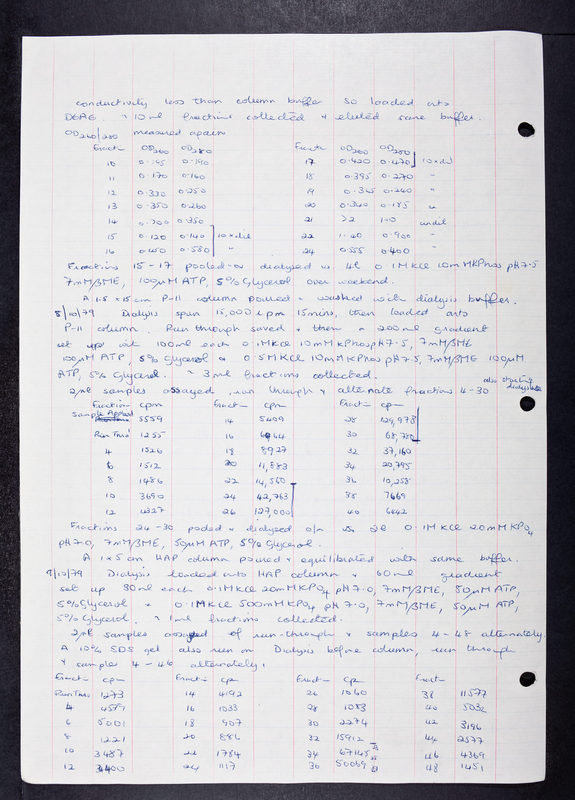 conductivity less than column buffer so loaded onto
DEAE. ~ 10ml fractions collected & eluted same buffer.
OD260/280 measured again
Fract- OD260 OD280 Fract- OD260 OD280
10 0.190 17 0.420 0.470 10xdil
11 0.170 0.160 18 0.395 0.270 "
12 0.330 0.250 19 0.345 0.240 "
13 0.350 0.260 20 0.340 0.185 "
14 0.700 0.350 21 >2 1.0 undil
15 0.120 0.140 10xdil 22 1.40 0.900 "
16 0.450 0.580 " 24 0.555 0.400 "
Fractions 15-17 pooled & dialysed vs 4l 0.1M KCl 10mM KPhos pH 7.5
7mM/3ME, 100µM ATP, 5% Glycerol over weekend.
A 1.5 x 15cm P-11 column poured & washed with dialysis buffer.
8/10/79 Dialysis spun 15,000 rpm 15mins, then loaded onto
P-11 column. Run through saved & then a 200ml gradient
set up with 100ml each 0.1M KCl 10mM KPhos pH 7.5, 7mM/3ME
100µM ATP, 5% Glycerol & 0.5M KCl 10mM KPhos pH 7.5, 7mM/3ME 100µM
ATP, 5% Glycerol. ~ 3ml fractions collected.
2µl samples assayed, run through & alternate fractions 4-30 also starting dialysate
Fraction cpm Fract- cpm Fract- cpm
Sample Applied 5559 14 5409 28 129,978
Run Thro' 1255 16 30 68,780
4 1526 18 8927 32 37,160
6 1512 20 11,883 34 20,795
8 1486 22 14,560 36 10,258
10 3690 24 42,763 38 7669
12 4327 26 127,000 40 6442
Fractions 24-30 pooled & dialysed o/n vs 2l 0.1M KCl 20mM KPO4
pH 7.0, 7mM/3ME, 50µM ATP, 5% Glycerol.
A 1x5cm HAP column poured & equilibrated with same buffer.
9/10/79 Dialysis loaded onto HAP column & 60ml gradient
set up 30ml each 0.1M KCl 20mM KPO4 pH 7.0, 7mM/3ME, 50µM ATP,
5% Glycerol & 0.1M KCl 500mM KPO4 pH 7.0, 7mM/3ME, 50µM ATP,
5% Glycerol. ~ 1ml fractions collected.
2µl samples assayed of run-through & samples 4-48 alternately.
A 10% SDS gel also run on Dialysis before column, run through
& samples 4-46 alternately.
Fract- cpm Fract- cpm Fract- cpm Fract-
Run Thro 1273 14 4192 26 1060 38 11577
4 4559 16 1033 28 1083 40 5032
6 5001 18 907 30 2274 42 3196
8 1221 20 886 32 15912 44 2577
10 3487 22 1784 34 67145 46 4369
12 3400 24 1117 36 50069 48 1451